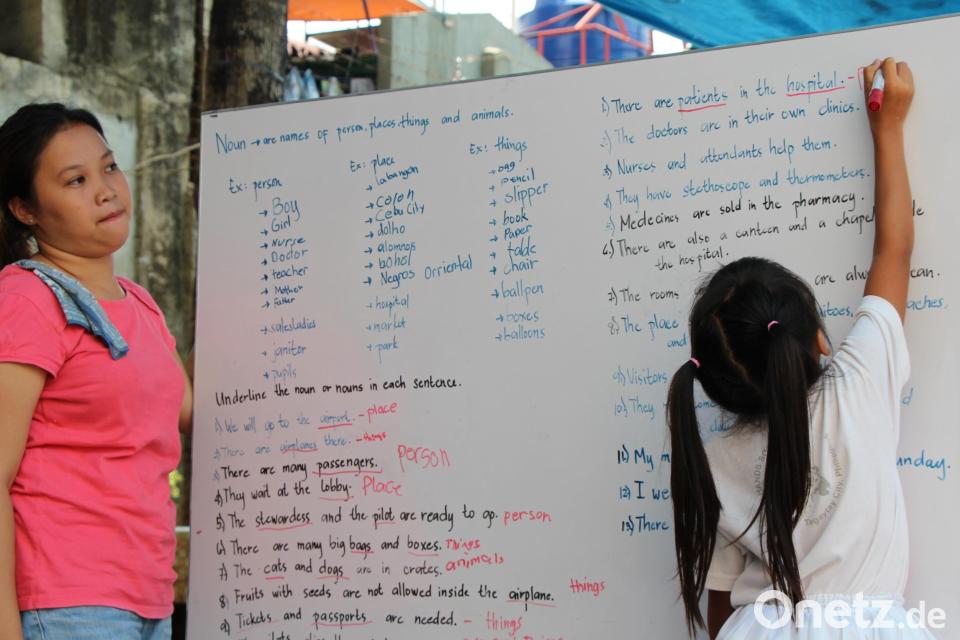 Noun → are names of person, places, things and animals.
Ex: person
→ Boy
→ Girl
→ Nurse
→ Doctor
→ teacher
→ Mother
→ Father
→ salesladies
→ janitor
→ pupils
Ex: place
→ labangon
→ colon
→ Cebu City
→ dolho
→ alomnos
→ bohol
→ Negros Orriental
→ hospital
→ market
→ park
Ex: things
→ bag
→ pencil
→ slipper
→ book
→ Paper
→ table
→ chair
→ ballpen
→ boxes
→ balloons
Underline the noun or nouns in each sentence.
1) We will go to the airport. - place
2) There are airplanes there. - things
3) There are many passengers. person
4) They wait at the lobby. Place
5) The stewardess and the pilot are ready to go. person
6) There are many big bags and boxes. Things
7) The cats and dogs are in crates. animals
8) Fruits with seeds are not allowed inside the airplane. things
9) Tickets and passports are needed. - things
1) There are patients in the hospital. -
2) The doctors are in their own clinics.
3) Nurses and attendants help them.
4) They have stethoscope and thermometers.
5) Medecines are sold in the pharmacy.
6) There are also a canteen and a chapel
the hospital.
7) The rooms are
8) The place
and
9) Visitors
10) They
11) My
12) I we
13) There
Onetz.de